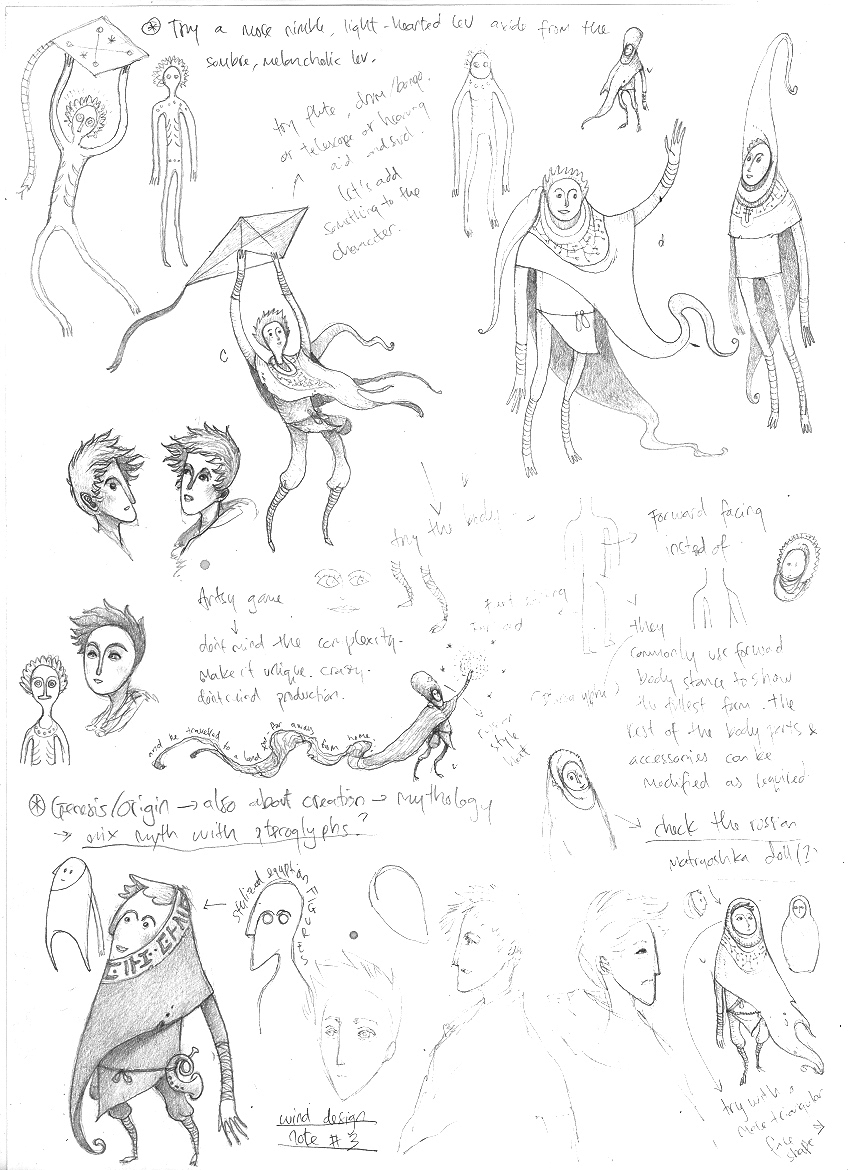 * Try a more nimble, light-hearted lev aside from the
sombre, melancholic lev.
try flute, drum/bongo.
or telescope or hearing
aid and such.
let's add
something to the
character.
c
d
try the body
Forward facing
insted of
Artsy game
dont mind the complexity.
make it unique. crazy.
dont mind production.
they
commonly use forward
body stance to show
the fullest form. the
rest of the body parts &
accessories can be
modified as required
and he travelled to a land far far away from home
style
* Genesis/origin → also about creation → mythology
→ mix myth with pteroglyphs?
→ check the russian
matryoshka doll (?)
← stylized egyption FIGURES
wind design
note # 3
try with a
more triangular
face
shape